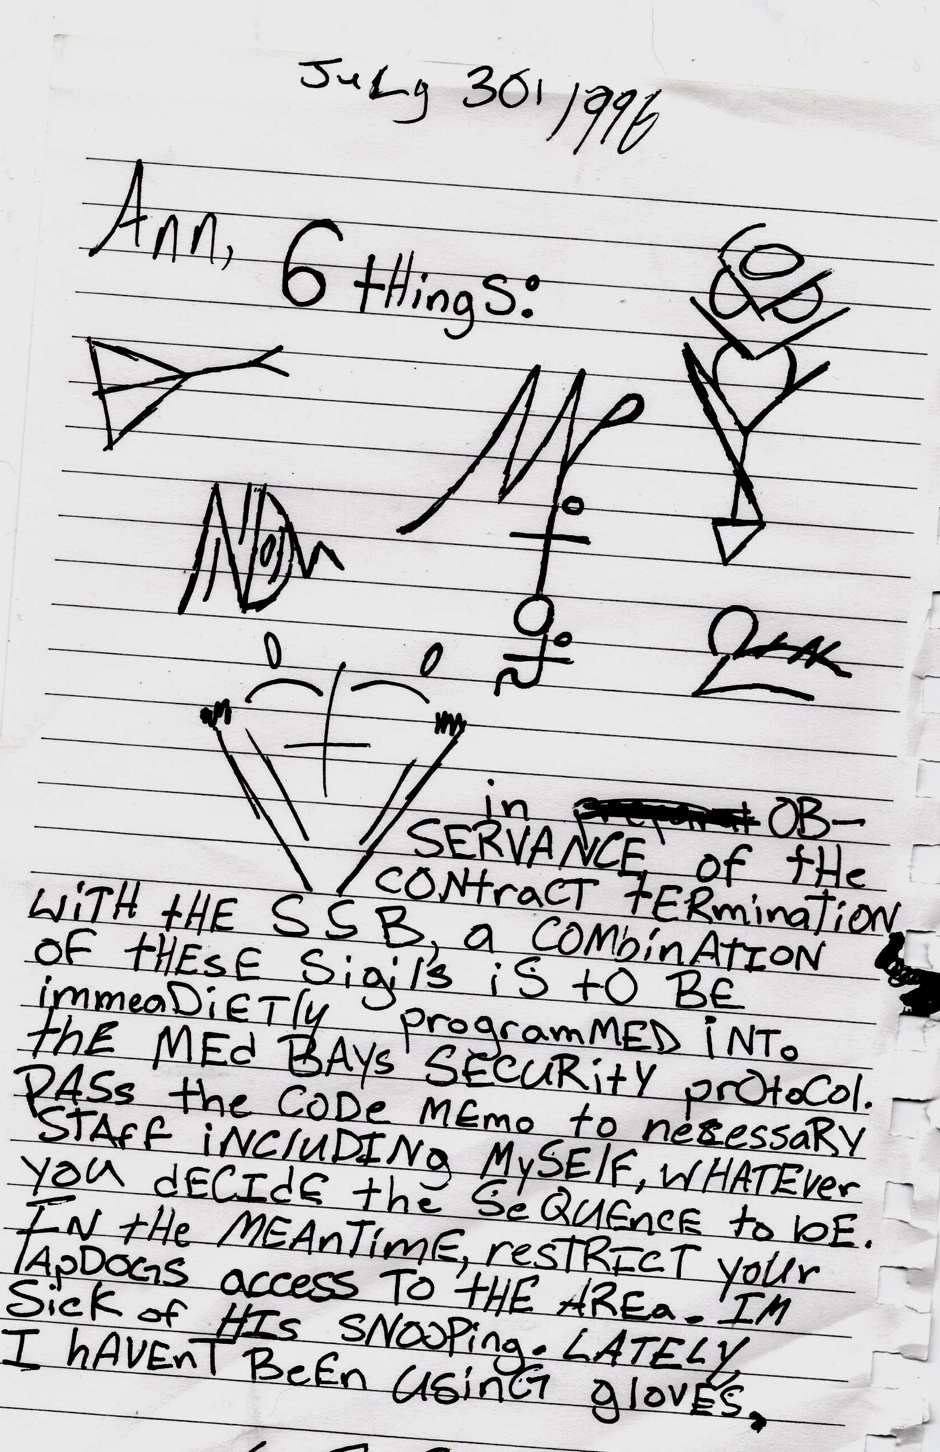 July 30, 1996
Ann, 6 tHings:
in OB-
SERVANCE, of tHe
CONtraCT tERminaTiON
WiTH tHE SSB, a COMbinATION
OF tHESE Sigil's iS tO BE
immeaDiETly programMED iNTo
thE MEd BAYs SECURitY prOtoCol.
PASs the CODe MEmo to necessaRY
STAfF iNClUDINg MySElF, WHATEver
YOU dECIdE the SeQUEncE to bE.
IN tHe MEAnTimE, resTRICT yoUr
lApDOGs access TO tHE AREa. IM
SicK of HIs SNOOPing. LATELY,
I hAVEnT BeEn USinG glovES,